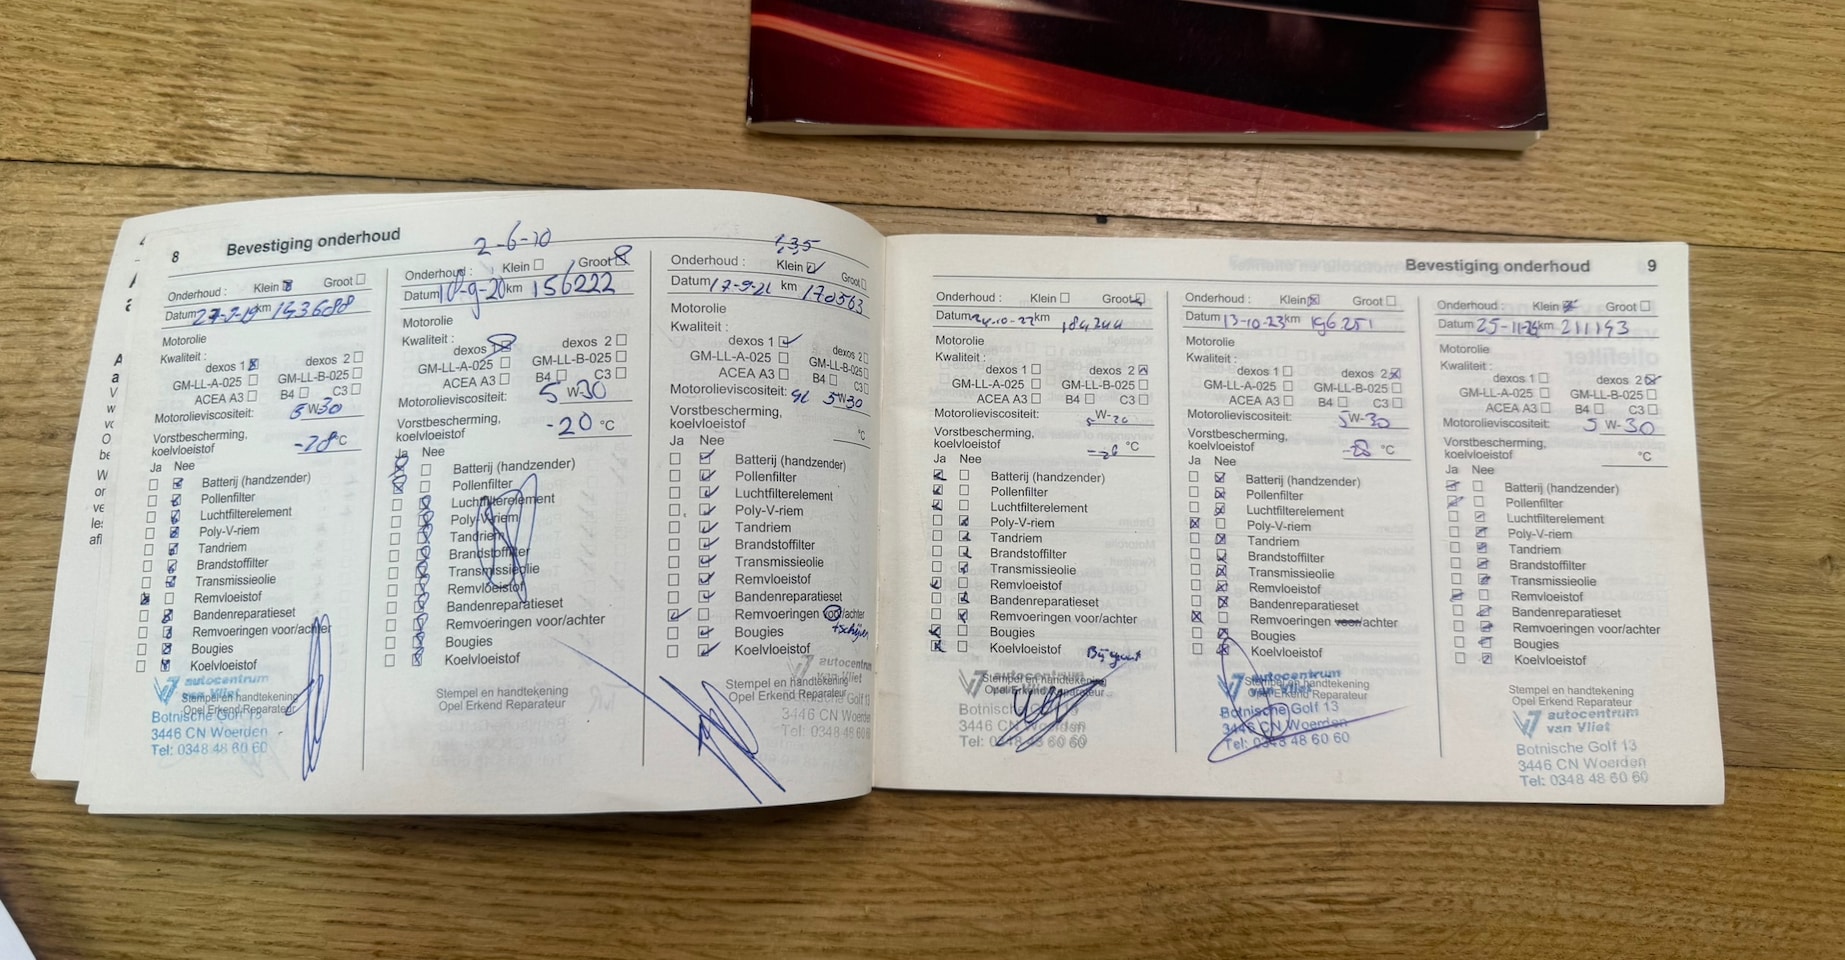 8 Bevestiging onderhoud
2-6-20
Onderhoud : Klein Groot
Datum 27-2-19 km 143688
Motorolie
Kwaliteit :
dexos 1 dexos 2
GM-LL-A-025 GM-LL-B-025
ACEA A3 B4 C3
Motorolieviscositeit: 5 W-30
Vorstbescherming,
koelvloeistof -28 °C
Ja Nee
Batterij (handzender)
Pollenfilter
Luchtfilterelement
Poly-V-riem
Tandriem
Brandstoffilter
Transmissieolie
Remvloeistof
Bandenreparatieset
Remvoeringen voor/achter
Bougies
Koelvloeistof
Stempel en handtekening
Opel Erkend Reparateur
autocentrum
van Vliet
Botnische Golf 13
3446 CN Woerden
Tel: 0348 48 60 60
Onderhoud : Klein Groot
Datum 10-9-20 km 156222
Motorolie
Kwaliteit :
dexos 1 dexos 2
GM-LL-A-025 GM-LL-B-025
ACEA A3 B4 C3
Motorolieviscositeit: 5 W-30
Vorstbescherming,
koelvloeistof -20 °C
Ja Nee
Batterij (handzender)
Pollenfilter
Luchtfilterelement
Poly-V-riem
Tandriem
Brandstoffilter
Transmissieolie
Remvloeistof
Bandenreparatieset
Remvoeringen voor/achter
Bougies
Koelvloeistof
Stempel en handtekening
Opel Erkend Reparateur
Onderhoud : Klein Groot
Datum 17-9-21 km 170563
Motorolie
Kwaliteit :
dexos 1 dexos 2
GM-LL-A-025 GM-LL-B-025
ACEA A3 B4 C3
Motorolieviscositeit: 5W30
Vorstbescherming,
koelvloeistof °C
Ja Nee
Batterij (handzender)
Pollenfilter
Luchtfilterelement
Poly-V-riem
Tandriem
Brandstoffilter
Transmissieolie
Remvloeistof
Bandenreparatieset
Remvoeringen voor/achter
Bougies
Koelvloeistof
autocentrum
van Vliet
Stempel en handtekening
Opel Erkend Reparateur
3446 CN Woerden
Tel: 0348 48 60
Bevestiging onderhoud 9
Onderhoud : Klein Groot
Datum 24-10-22 km 184244
Motorolie
Kwaliteit :
dexos 1 dexos 2
GM-LL-A-025 GM-LL-B-025
ACEA A3 B4 C3
Motorolieviscositeit:
Vorstbescherming,
koelvloeistof °C
Ja Nee
Batterij (handzender)
Pollenfilter
Luchtfilterelement
Poly-V-riem
Tandriem
Brandstoffilter
Transmissieolie
Remvloeistof
Bandenreparatieset
Remvoeringen voor/achter
Bougies
Koelvloeistof
Stempel en handtekening
Opel Erkend Reparateur
autocentrum
van Vliet
Botnische Golf 13
3446 CN Woerden
Tel: 0348 48 60 60
Onderhoud : Klein Groot
Datum 13-10-23 km 196251
Motorolie
Kwaliteit :
dexos 1 dexos 2
GM-LL-A-025 GM-LL-B-025
ACEA A3 B4 C3
Motorolieviscositeit: 5W-30
Vorstbescherming,
koelvloeistof -28 °C
Ja Nee
Batterij (handzender)
Pollenfilter
Luchtfilterelement
Poly-V-riem
Tandriem
Brandstoffilter
Transmissieolie
Remvloeistof
Bandenreparatieset
Remvoeringen voor/achter
Bougies
Koelvloeistof
Stempel en handtekening
Opel Erkend Reparateur
autocentrum
van Vliet
Botnische Golf 13
3446 CN Woerden
Tel: 0348 48 60 60
Onderhoud : Klein Groot
Datum 25-11-24 km 211193
Motorolie
Kwaliteit :
dexos 1 dexos 2
GM-LL-A-025 GM-LL-B-025
ACEA A3 B4 C3
Motorolieviscositeit: 5 W-30
Vorstbescherming,
koelvloeistof °C
Ja Nee
Batterij (handzender)
Pollenfilter
Luchtfilterelement
Poly-V-riem
Tandriem
Brandstoffilter
Transmissieolie
Remvloeistof
Bandenreparatieset
Remvoeringen voor/achter
Bougies
Koelvloeistof
Stempel en handtekening
Opel Erkend Reparateur
autocentrum
van Vliet
Botnische Golf 13
3446 CN Woerden
Tel: 0348 48 60 60